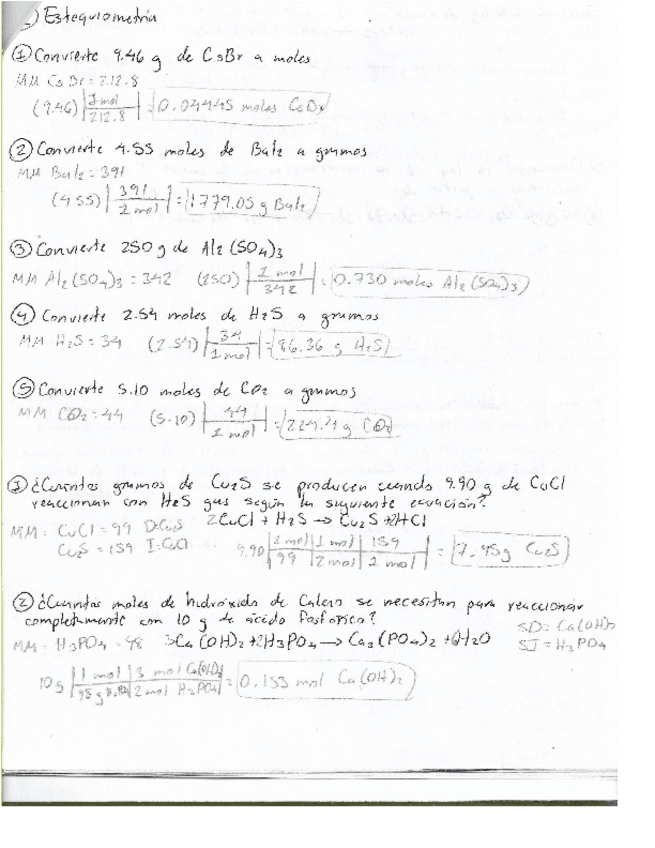 ) Estequiometría
① Convierte 9.46 g de CsBr a moles
MM CsBr = 212.8
(9.46) | 1 mol / 212.8 | = 0.04445 moles CsBr
② Convierte 4.55 moles de BaI2 a gramos
MM BaI2 = 391
(4.55) | 391 / 1 mol | = 1779.05 g BaI2
③ Convierte 250 g de Al2(SO4)3
MM Al2(SO4)3 = 342 (250) | 1 mol / 342 | = 0.730 moles Al2(SO4)3
④ Convierte 2.54 moles de H2S a gramos
MM H2S = 34 (2.54) | 34 / 1 mol | = 86.36 g H2S
⑤ Convierte 5.10 moles de CO2 a gramos
MM CO2 = 44 (5.10) | 44 / 1 mol | = 224.4 g CO2
① ¿Cuantos gramos de Cu2S se producen cuando 9.90 g de CuCl
reaccionan con H2S gas según la siguiente ecuación?
MM: CuCl = 99 D:Cu2S 2CuCl + H2S → Cu2S + 2HCl
Cu2S = 159 I:CuCl 9.90 | 1 mol / 99 | 1 mol / 2 mol | 159 / 1 mol | = 7.95 g Cu2S
② ¿Cuantas moles de hidróxido de Calcio se necesitan para reaccionar
completamente con 10 g de ácido fosforico? SD = Ca(OH)2
MM = H3PO4 = 98 3Ca(OH)2 + 2H3PO4 → Ca3(PO4)2 + 6H2O SI = H3PO4
10 g | 1 mol / 98 g H3PO4 | 3 mol Ca(OH)2 / 2 mol H3PO4 | = 0.153 mol Ca(OH)2